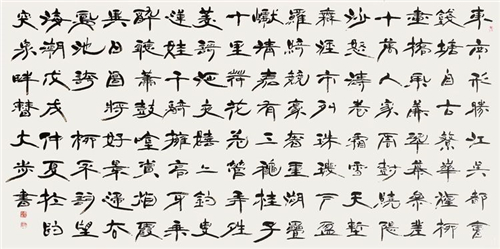 東南形勝江吳都會
錢塘自古繁華煙柳
畫橋風簾翠幕參差
十萬人家雲樹繞堤
沙怒濤卷霜雪天塹
無涯市列珠璣戶盈
羅綺競豪奢重湖疊
巘清嘉有三秋桂子
十里荷花羌管弄晴
菱歌泛夜嬉嬉釣叟
蓮娃千騎擁高牙乘
醉聽簫鼓吟賞煙霞
異日圖將好景歸去
鳳池誇 柳永詞望
海潮戊戌仲夏於趵
突泉畔大步書